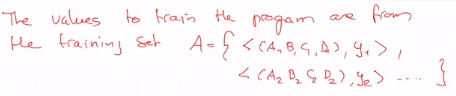 The values to train the progam are from
the training set A = { < (A₁ B₁ C₁ D₁), y₁ > ,
< (A₂ B₂ C₂ D₂), y₂ > .... }